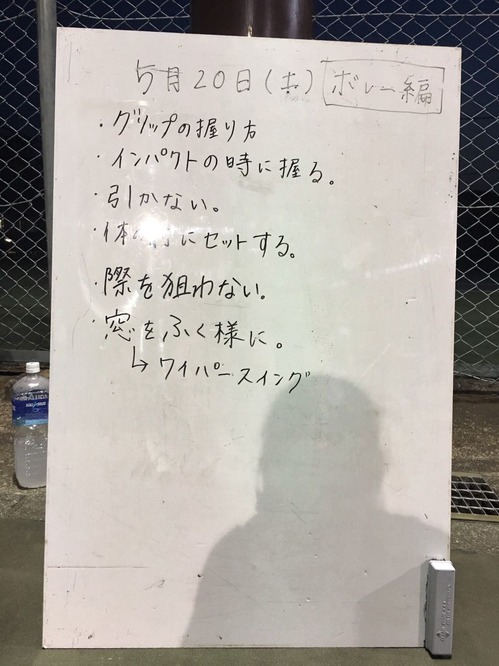 5月20日(土) ボレー編
・グリップの握り方
・インパクトの時に握る。
・引かない。
・体の にセットする。
・際を狙わない。
・窓をふく様に。
↳ワイパースイング